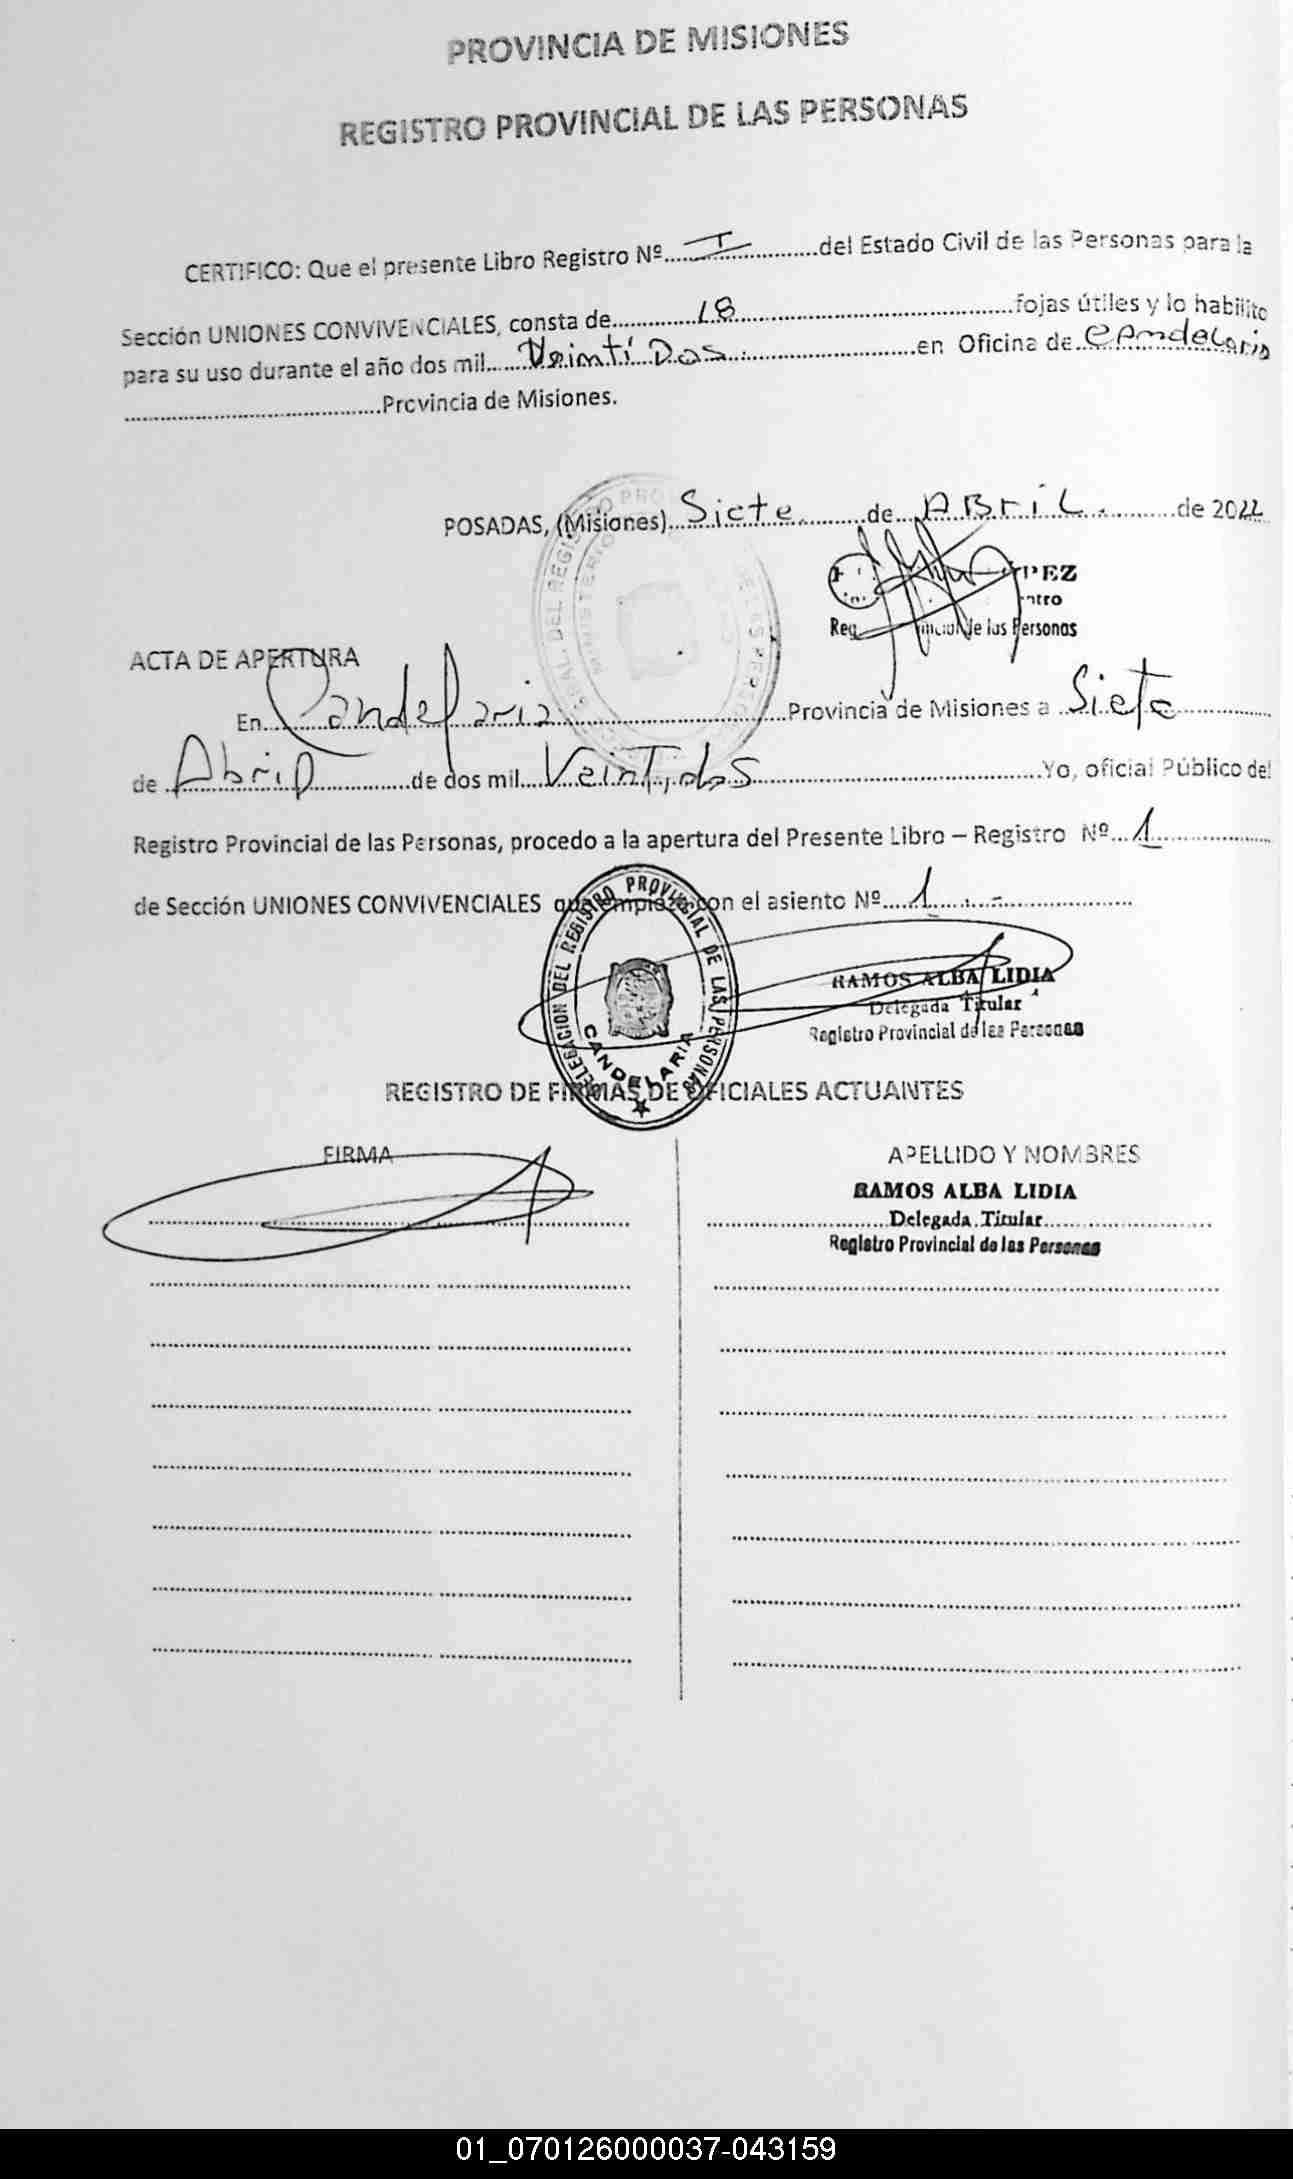 PROVINCIA DE MISIONES
REGISTRO PROVINCIAL DE LAS PERSONAS
CERTIFICO: Que el presente Libro Registro Nº....I....del Estado Civil de las Personas para la
Sección UNIONES CONVIVENCIALES, consta de....18....fojas útiles y lo habilito
para su uso durante el año dos mil....Veinti Dos....en Oficina de Candelaria
....Provincia de Misiones.
POSADAS, (Misiones)....Siete....de....ABRIL....de 2022
PEZ
Personas
ACTA DE APERTURA
En....Candelaria....Provincia de Misiones a....Siete....
de....Abril....de dos mil....Veintidos....Yo, oficial Público del
Registro Provincial de las Personas, procedo a la apertura del Presente Libro – Registro Nº....1....
de Sección UNIONES CONVIVENCIALES que empieza con el asiento Nº....1....-....
DELEGACION DEL REGISTRO PROVINCIAL DE LAS PERSONAS
CANDELARIA
RAMOS ALBA LIDIA
Delegada Titular
Registro Provincial de las Personas
REGISTRO DE FIRMAS DE OFICIALES ACTUANTES
FIRMA APELLIDO Y NOMBRES
RAMOS ALBA LIDIA
Delegada Titular
Registro Provincial de las Personas
01_070126000037-043159